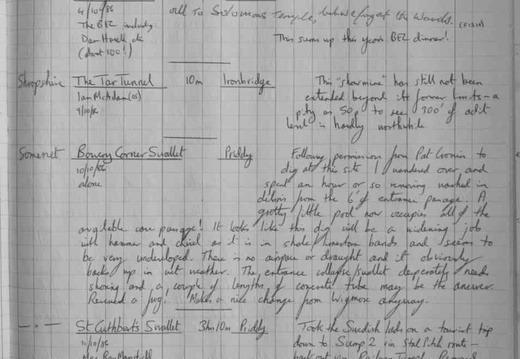 4/10/86 all to Solomons Temple, but
The BEC including This seems up this years BEC dinner!
Dan Hassell etc
(about 100!)
Shropshire The Tar Tunnel 10m Ironbridge This "showmine" has still not been
Ian McAdam(os) extended beyond its former limits - a
9/10/86 pity as 50p to see 300' of adit
level is hardly worthwhile
Somerset Bowery Corner Swallet Priddy Following permission from Pat Cronin to
10/10/86 dig at this site I wandered over and
alone spent an hour or so removing washed in
debris from the 6' of entrance passage. A
grotty little pool now occupies all of the
available cave passage! It looks like this dig will be a widening job
with hammer and chisel as it is in shale/limestone bands and seems to
be very undeveloped. There is no airspace or draught and it obviously
backs up in wet weather. The entrance collapse/swallet desperately needs
shoring and a couple of lengths of concrete tube may be the answer.
Rescued a frog! Makes a nice change from Wigmore anyway.
-"- St Cuthberts Swallet 3h 10m Priddy Took the Swedish lads on a tourist trip
11/10/86 down to Sump 2 via Stal Pitch route -